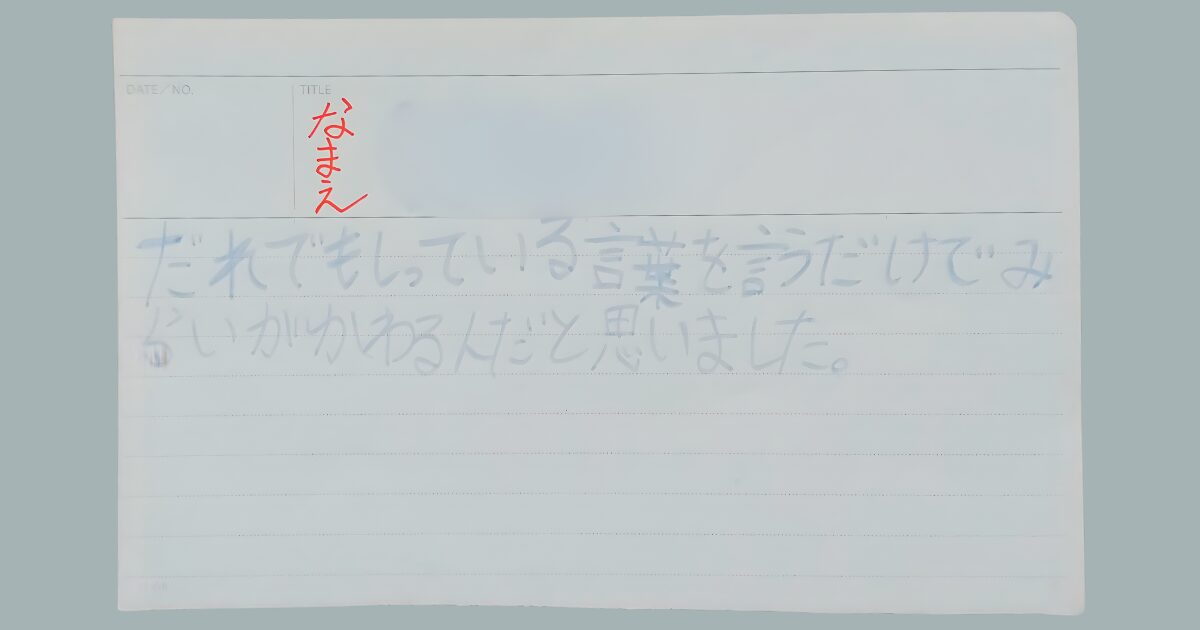 DATE/NO.
TITLE
なまえ
だれでもしっている言葉を言うだけでみ
らいがかわるんだと思いました。